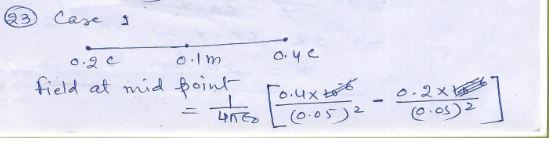 23 Case 1
0.2 C 0.1 m 0.4 C
field at mid point
= 1/4πε0 [ 0.4 × / (0.05)2 - 0.2 × / (0.05)2 ]